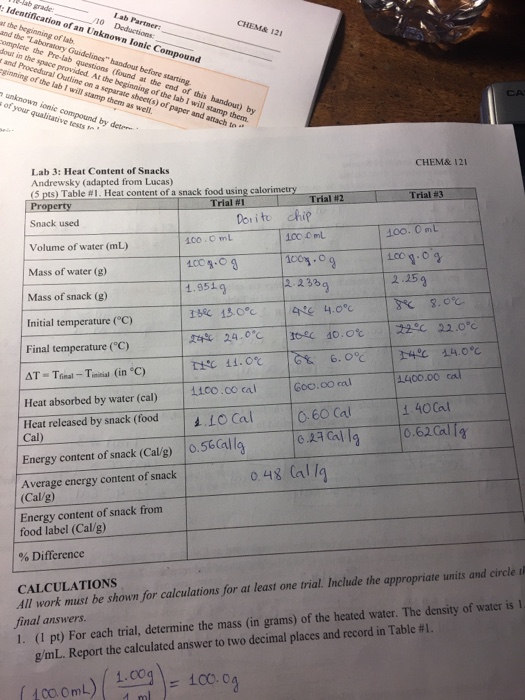 Lab Partner:
CHEM& 121
/10 Deductions:
: Identification of an Unknown Ionic Compound
at the beginning of lab.
and the "Laboratory Guidelines" handout before starting.
omplete the Pre-lab questions (found at the end of this handout) by
dout in the space provided. At the beginning of the lab I will stamp them.
and Procedural Outline on a separate sheet(s) of paper and attach to
ginning of the lab I will stamp them as well.
unknown ionic compound by
of your qualitative tests
CA
Lab 3: Heat Content of Snacks
CHEM& 121
Andrewsky (adapted from Lucas)
(5 pts) Table #1. Heat content of a snack food using calorimetry
Property Trial #1 Trial #2 Trial #3
Snack used Dorito chip
Volume of water (mL) 100.0 mL 100.0mL 100.0mL
Mass of water (g) 100.0g 100.0g 100.0g
Mass of snack (g) 1.951g 2.233g 2.25g
Initial temperature (°C) 13.0°C 4°C 4.0°C 8°C 8.0°C
Final temperature (°C) 24°C 24.0°C 10°C 10.0°C 22°C 22.0°C
ΔT = Tfinal – Tinitial (in °C) 11°C 11.0°C 6.0°C 14°C 14.0°C
Heat absorbed by water (cal) 1100.00 cal 600.00 cal 1400.00 cal
Heat released by snack (food 1.10 Cal 0.60 Cal 1.40 Cal
Cal)
Energy content of snack (Cal/g) 0.56Cal/g 0.27 Cal/g 0.62Cal/g
Average energy content of snack 0.48 Cal/g
(Cal/g)
Energy content of snack from
food label (Cal/g)
% Difference
CALCULATIONS
All work must be shown for calculations for at least one trial. Include the appropriate units and circle
final answers.
1. (1 pt) For each trial, determine the mass (in grams) of the heated water. The density of water is 1.
g/mL. Report the calculated answer to two decimal places and record in Table #1.
(100.0mL) (1.00g
1 ml) = 100.0g